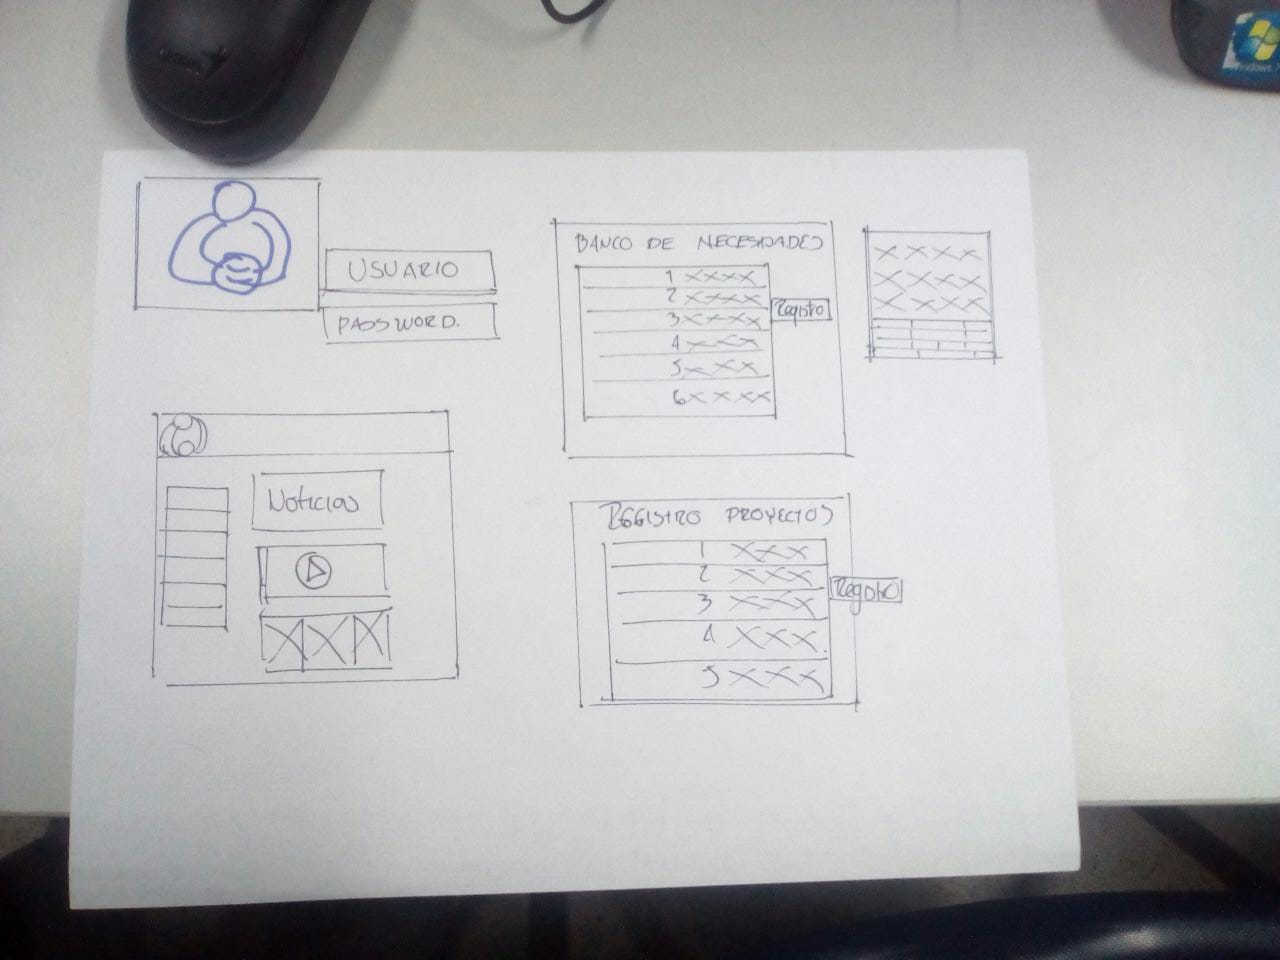 USUARIO
PASSWORD.
Noticias
BANCO DE NECESIDADES
1 XXXX
2 XXXX
3 XXXX
4 XXX
5 XXX
6 XXXX
Registro
XXXX
XXXX
XXXX
REGISTRO PROYECTOS
1 XXX
2 XXX
3 XXX
4 XXX
5 XXX
Registro
Windows 7